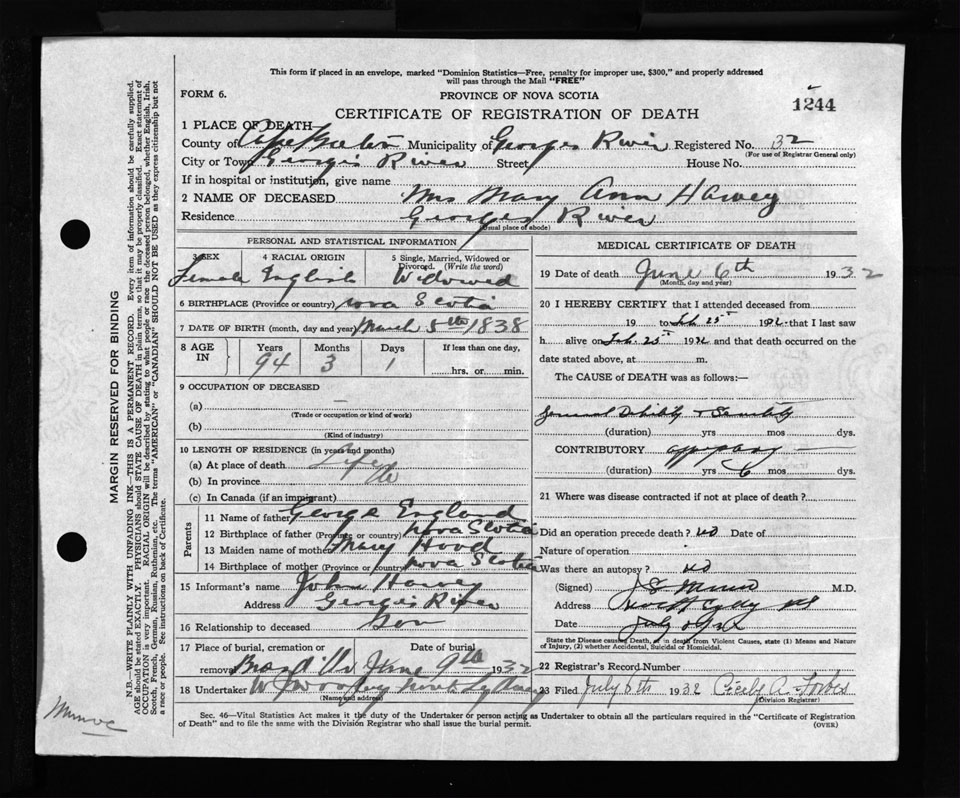 This form if placed in an envelope, marked "Dominion Statistics—Free, penalty for improper use, $300," and properly addressed
will pass through the Mail "FREE"
FORM 6.
PROVINCE OF NOVA SCOTIA
1244
CERTIFICATE OF REGISTRATION OF DEATH
1 PLACE OF DEATH—
County of Cape Breton Municipality of Georges River Registered No. 32
(For use of Registrar General only)
City or Town Georges River Street House No.
If in hospital or institution, give name
2 NAME OF DECEASED Mrs Mary Ann Harvey
Residence Georges River
(Usual place of abode)
PERSONAL AND STATISTICAL INFORMATION
3 SEX 4 RACIAL ORIGIN 5 Single, Married, Widowed or
Divorced. (Write the word)
Female English Widowed
6 BIRTHPLACE (Province or country) Nova Scotia
7 DATE OF BIRTH (month, day and year) March 5th 1838
8 AGE IN Years Months Days If less than one day,
94 3 1 hrs. or min.
9 OCCUPATION OF DECEASED
(a) —
(Trade or occupation or kind of work)
(b)
(Kind of industry)
10 LENGTH OF RESIDENCE (in years and months)
(a) At place of death Life
(b) In province do
(c) In Canada (if an immigrant)
Parents
11 Name of father George England
12 Birthplace of father (Province or country) Nova Scotia
13 Maiden name of mother Mary Hood
14 Birthplace of mother (Province or country) Nova Scotia
15 Informant's name John Harvey
Address Georges River
16 Relationship to deceased Son
17 Place of burial, cremation or Date of burial
removal June 9th 1932
18 Undertaker
(Name and address)
MEDICAL CERTIFICATE OF DEATH
19 Date of death June 6th 1932
(Month, day and year)
20 I HEREBY CERTIFY that I attended deceased from
19 to Feb. 25th 1932 that I last saw
h alive on Feb. 25th 1932 and that death occurred on the
date stated above, at m.
The CAUSE of DEATH was as follows:—
General Debility & Senility
(duration) yrs mos dys.
CONTRIBUTORY
(duration) yrs 6 mos dys.
21 Where was disease contracted if not at place of death?
Did an operation precede death? no Date of
Nature of operation
Was there an autopsy? no
(Signed) M.D.
Address
Date July
State the Disease causing Death, or in death from Violent Causes, state (1) Means and Nature
of Injury, (2) whether Accidental, Suicidal or Homicidal.
22 Registrar's Record Number
23 Filed July 8th 1932
(Division Registrar)
Sec. 46—Vital Statistics Act makes it the duty of the Undertaker or person acting as Undertaker to obtain all the particulars required in the "Certificate of Registration
of Death" and to file the same with the Division Registrar who shall issue the burial permit.
(OVER)
MARGIN RESERVED FOR BINDING
N.B.—WRITE PLAINLY WITH UNFADING INK—THIS IS A PERMANENT RECORD. Every item of information should be carefully supplied.
AGE should be stated EXACTLY. PHYSICIANS should STATE CAUSE OF DEATH in plain terms, so that it may be properly classified. Exact statement of
OCCUPATION is very important. RACIAL ORIGIN will be described by stating to what people or race the deceased person belonged, whether English, Irish,
Scotch, French, German, Russian, Ruthenian, etc. The terms "AMERICAN" or "CANADIAN" SHOULD NOT BE USED as they express citizenship but not
a race or people. See instructions on back of Certificate.
Munroe